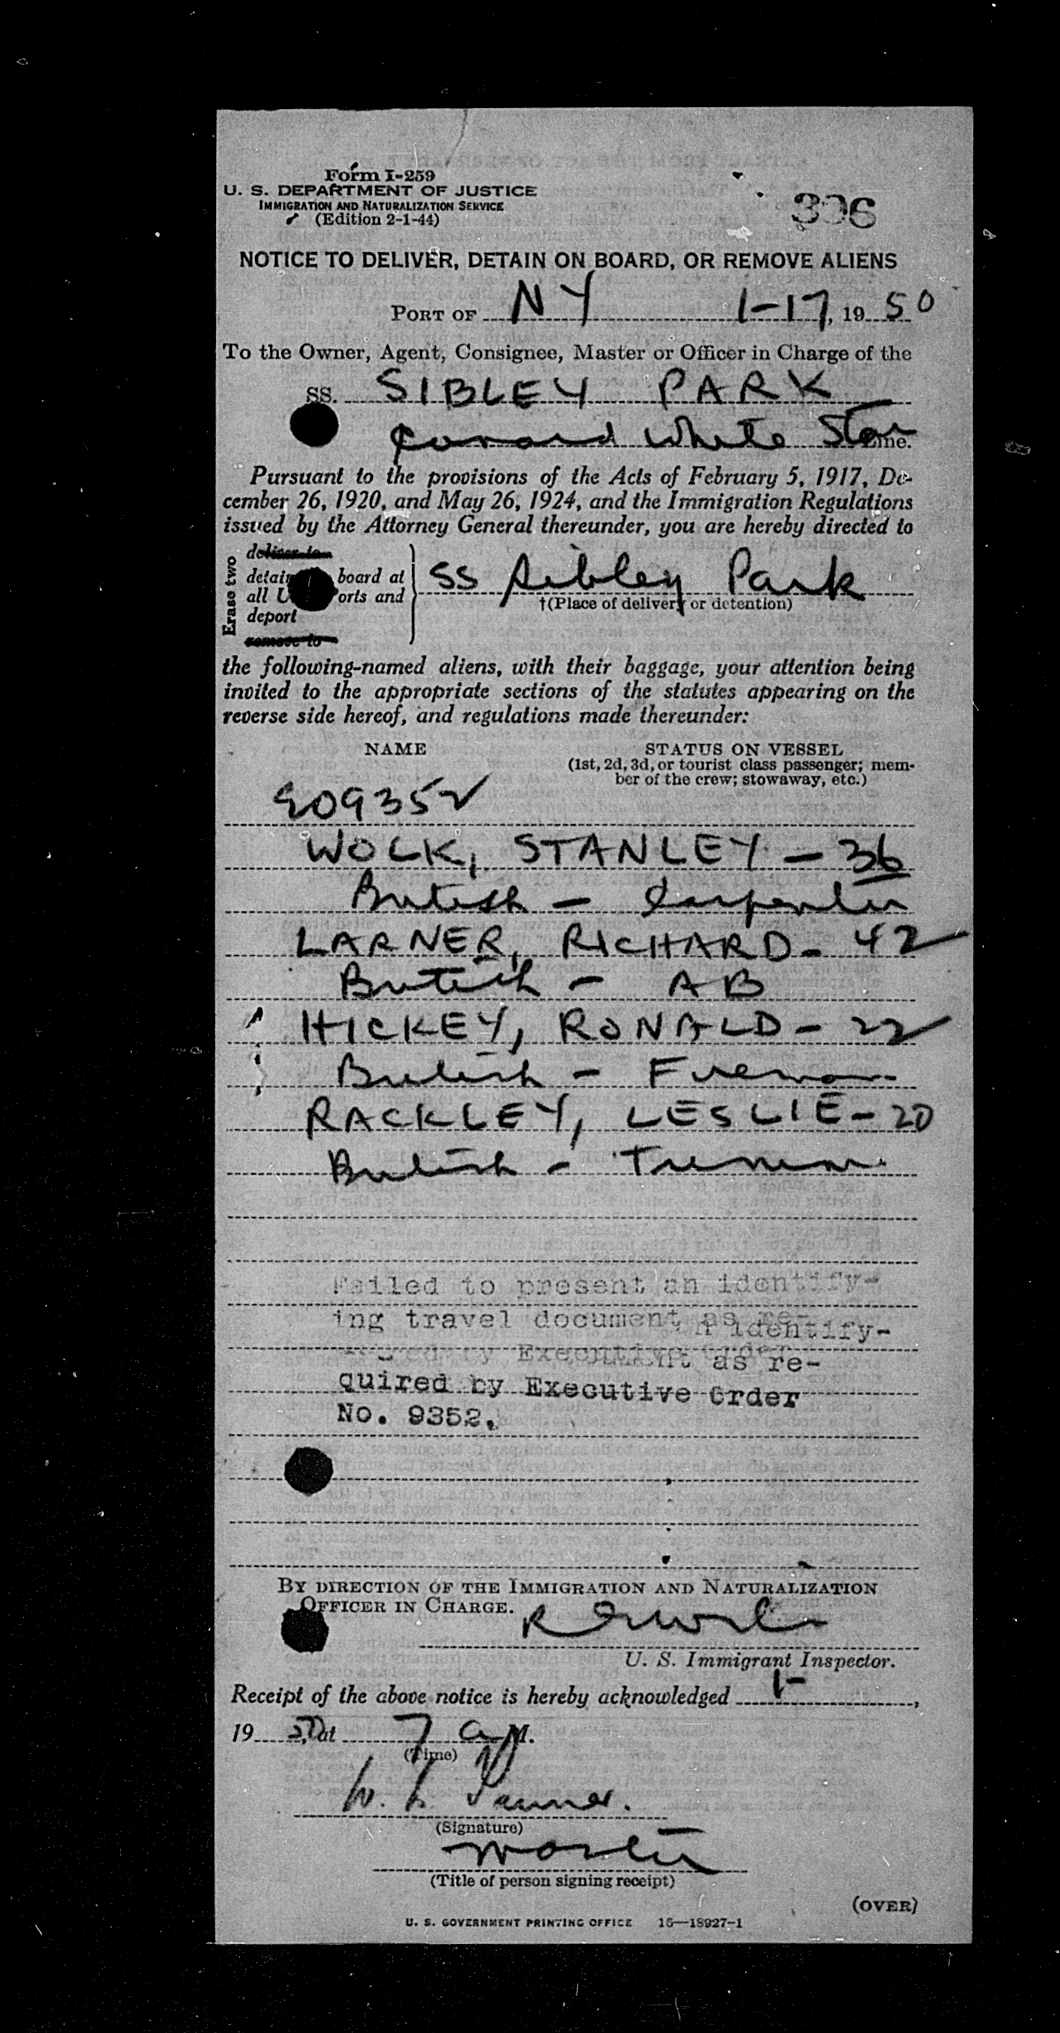 Form I-259
U. S. DEPARTMENT OF JUSTICE
IMMIGRATION AND NATURALIZATION SERVICE
(Edition 2-1-44)
396
NOTICE TO DELIVER, DETAIN ON BOARD, OR REMOVE ALIENS
PORT OF NY 1-17, 1950
To the Owner, Agent, Consignee, Master or Officer in Charge of the
SS. SIBLEY PARK
Cunard White Star Line.
Pursuant to the provisions of the Acts of February 5, 1917, De-
cember 26, 1920, and May 26, 1924, and the Immigration Regulations
issued by the Attorney General thereunder, you are hereby directed to
Erase two
deliver to
detain board at
all U orts and
deport
remove to
SS Sibley Park
†(Place of delivery or detention)
the following-named aliens, with their baggage, your attention being
invited to the appropriate sections of the statutes appearing on the
reverse side hereof, and regulations made thereunder:
NAME STATUS ON VESSEL
(1st, 2d, 3d, or tourist class passenger; mem-
ber of the crew; stowaway, etc.)
E09352
WOLK, STANLEY - 36
British - Carpenter
LARNER, RICHARD - 42
British - AB
HICKEY, RONALD - 22
British - Fireman
RACKLEY, LESLIE - 20
British - Trimmer
Failed to present an identify-
ing travel document as re-
n identify-
quired by Executive Order
nt as re-
quired by Executive Order
No. 9352.
BY DIRECTION OF THE IMMIGRATION AND NATURALIZATION
OFFICER IN CHARGE.
U. S. Immigrant Inspector.
Receipt of the above notice is hereby acknowledged 1-,
19 50, at 7 a M.
(Time)
W. L.
(Signature)
Master
(Title of person signing receipt)
(OVER)
U. S. GOVERNMENT PRINTING OFFICE 16—18927-1